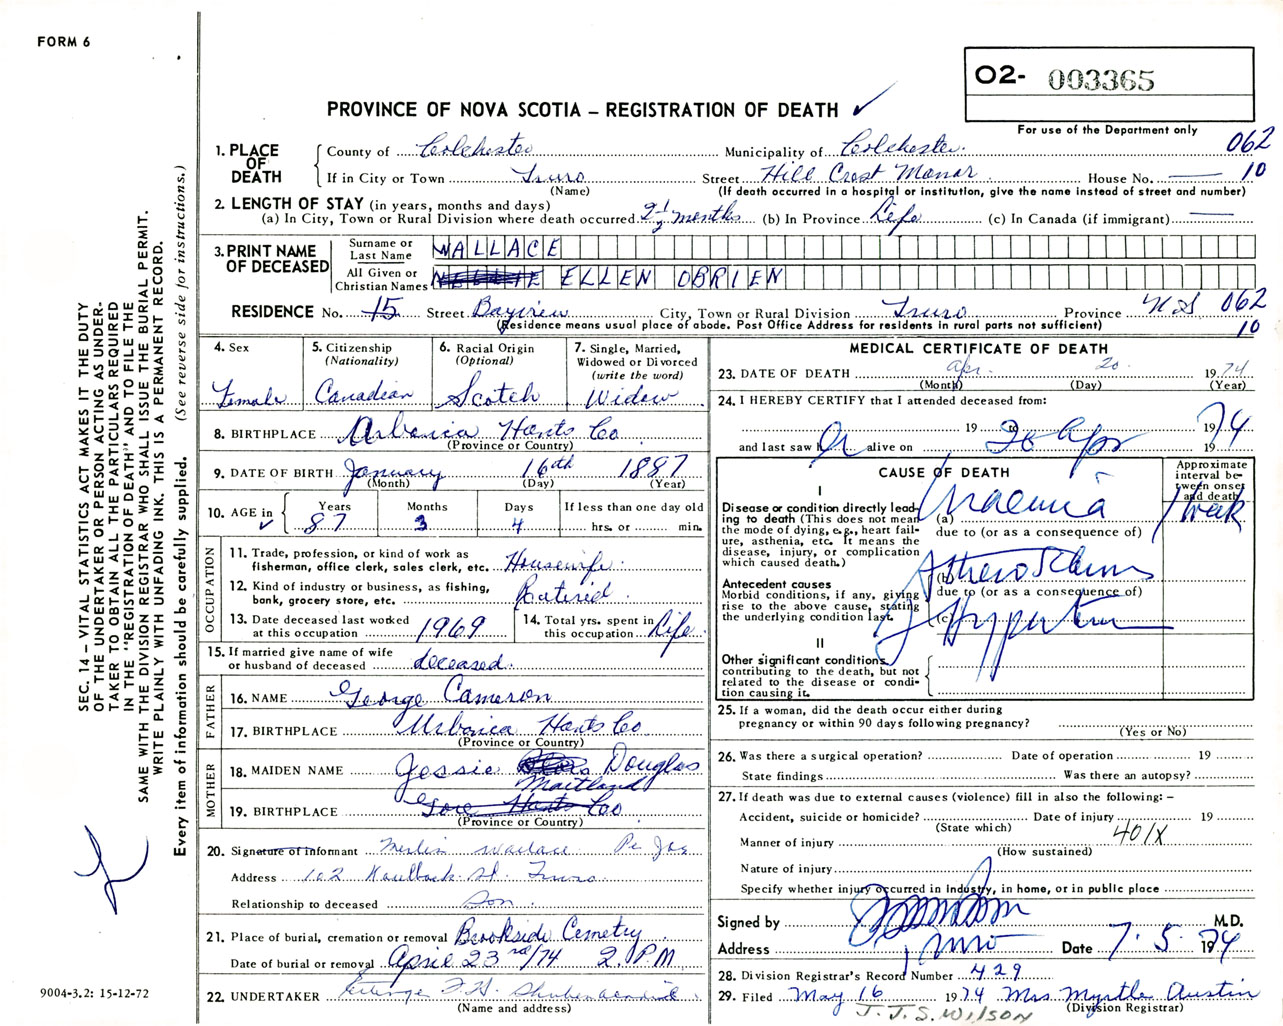 FORM 6
O2- 003365
For use of the Department only
PROVINCE OF NOVA SCOTIA – REGISTRATION OF DEATH ✓
062
10
1. PLACE OF DEATH
County of Colchester Municipality of Colchester
If in City or Town Truro Street Hill Crest Manor House No. —
(Name) (If death occurred in a hospital or institution, give the name instead of street and number)
2. LENGTH OF STAY (in years, months and days)
(a) In City, Town or Rural Division where death occurred 2½ months (b) In Province Life (c) In Canada (if immigrant) —
3. PRINT NAME OF DECEASED
Surname or Last Name WALLACE
All Given or Christian Names ELLEN OBRIEN
RESIDENCE No. 15 Street Bayview City, Town or Rural Division Truro Province N S 062
(Residence means usual place of abode. Post Office Address for residents in rural parts not sufficient) 10
4. Sex
Female
5. Citizenship
(Nationality)
Canadian
6. Racial Origin
(Optional)
Scotch
7. Single, Married, Widowed or Divorced
(write the word)
Widow
8. BIRTHPLACE Urbania Hants Co
(Province or Country)
9. DATE OF BIRTH January 16th 1887
(Month) (Day) (Year)
10. AGE in ✓ Years 87 Months 3 Days 4 If less than one day old hrs. or min.
OCCUPATION
11. Trade, profession, or kind of work as fisherman, office clerk, sales clerk, etc. Housewife
12. Kind of industry or business, as fishing, bank, grocery store, etc. Retired
13. Date deceased last worked at this occupation 1969
14. Total yrs. spent in this occupation Life
15. If married give name of wife or husband of deceased deceased
FATHER
16. NAME George Cameron
17. BIRTHPLACE Urbania Hants Co
(Province or Country)
MOTHER
18. MAIDEN NAME Jessie Douglas
Maitland
19. BIRTHPLACE Gore Hants Co
(Province or Country)
20. Signature of informant Merlin Wallace Pe Joe
Address 102 Kaulback St. Truro
Relationship to deceased Son
21. Place of burial, cremation or removal Brookside Cemetry
Date of burial or removal April 23rd/74 2. P.M
22. UNDERTAKER
(Name and address)
MEDICAL CERTIFICATE OF DEATH
23. DATE OF DEATH Apr. 20 1974
(Month) (Day) (Year)
24. I HEREBY CERTIFY that I attended deceased from:
19 to 1974
and last saw h alive on 20 Apr 19
CAUSE OF DEATH
Approximate interval between onset and death
I
Disease or condition directly leading to death (This does not mean the mode of dying, e.g., heart failure, asthenia, etc. It means the disease, injury, or complication which caused death.)
(a) Uraemia 1 week
due to (or as a consequence of)
Antecedent causes
Morbid conditions, if any, giving rise to the above cause, stating the underlying condition last.
(b)
due to (or as a consequence of)
(c)
II
Other significant conditions contributing to the death, but not related to the disease or condition causing it.
25. If a woman, did the death occur either during pregnancy or within 90 days following pregnancy?
(Yes or No)
26. Was there a surgical operation? Date of operation 19
State findings Was there an autopsy?
27. If death was due to external causes (violence) fill in also the following: –
Accident, suicide or homicide? Date of injury 19
(State which)
401X
Manner of injury
(How sustained)
Nature of injury
Specify whether injury occurred in industry, in home, or in public place
Signed by M.D.
Address Truro Date 7. 5. 1974
28. Division Registrar's Record Number 429
29. Filed May 16 1974 Mrs Myrtle Austin
(Division Registrar)
J. J. S. WILSON
SEC. 14 – VITAL STATISTICS ACT MAKES IT THE DUTY
OF THE UNDERTAKER OR PERSON ACTING AS UNDER-
TAKER TO OBTAIN ALL THE PARTICULARS REQUIRED
IN THE "REGISTRATION OF DEATH" AND TO FILE THE
SAME WITH THE DIVISION REGISTRAR WHO SHALL ISSUE THE BURIAL PERMIT.
WRITE PLAINLY WITH UNFADING INK. THIS IS A PERMANENT RECORD.
Every item of information should be carefully supplied. (See reverse side for instructions.)
9004-3.2: 15-12-72